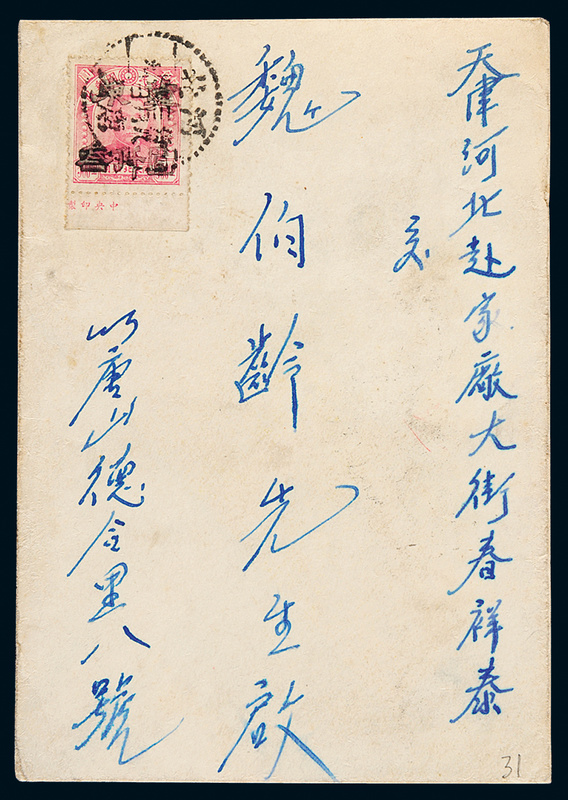 天津河北赵家厰大街春祥泰
交
魏伯齡先生啟
唐山德合里八號
中央印製
31